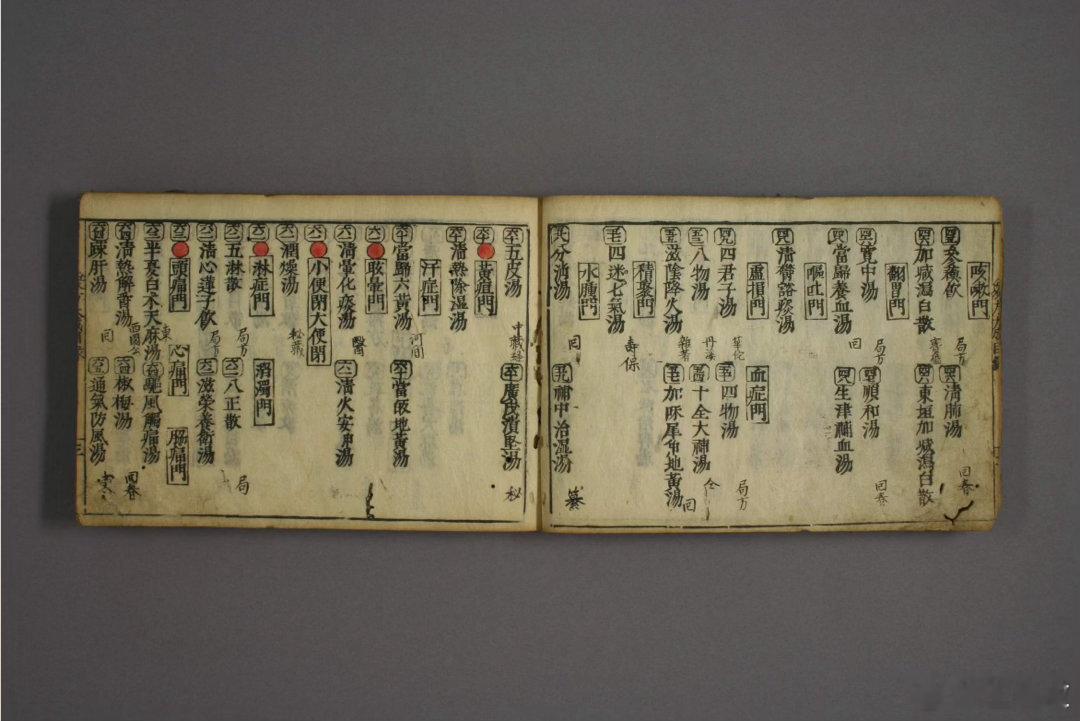 咳嗽門
安蘇飲 局方
清肺湯 回春
加減瀉白散 寶鑑
東垣加減瀉白散
翻胃門
寬中湯 局方
順和湯 回春
當歸養血湯 回
生津補血湯
嘔吐門
清欝豁痰湯
虛損門
四君子湯
四物湯 局方
血症門
八物湯 丹溪
十全大補湯 仝
滋陰降火湯 雜著
加味犀角地黃湯 回
積聚門
四迷七氣湯 壽保
水腫門
分消湯 回
補中治湿湯 纂
五皮湯 中藏経
廣茂潰堅湯 秘
黃疸門
清熱除湿湯
汗症門
當歸六黃湯 河間
當皈地黃湯
眩暈門
清暈化痰湯 醫
清火安中湯
小便閉大便閉
潤燥湯 秘藏
淋症門
五淋散 局方
八正散 局
消濁門
清心蓮子飲 局方
滋榮養衛湯
頭痛門
半夏白朮天麻湯 東
驅風觸痛湯
心痛門
清熱解欝湯
椒梅湯 回春
脇痛門
疎肝湯 回
通氣防風湯